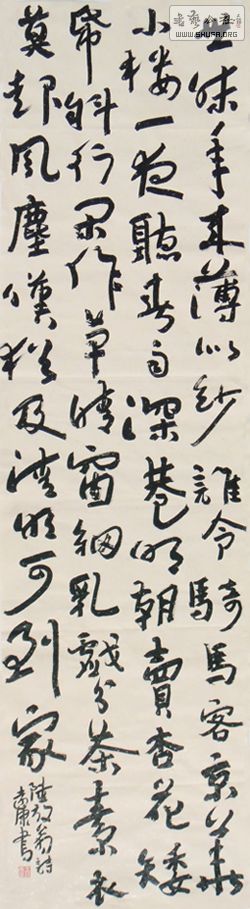 世味年来薄似紗誰令騎馬客京華
小樓一夜聽春雨深巷明朝賣杏花矮
帋斜行閑作草晴窗細乳戲分茶素衣
莫起風塵嘆猶及清明可到家
陸放翁詩
康書
WWW.SHUFA.ORG